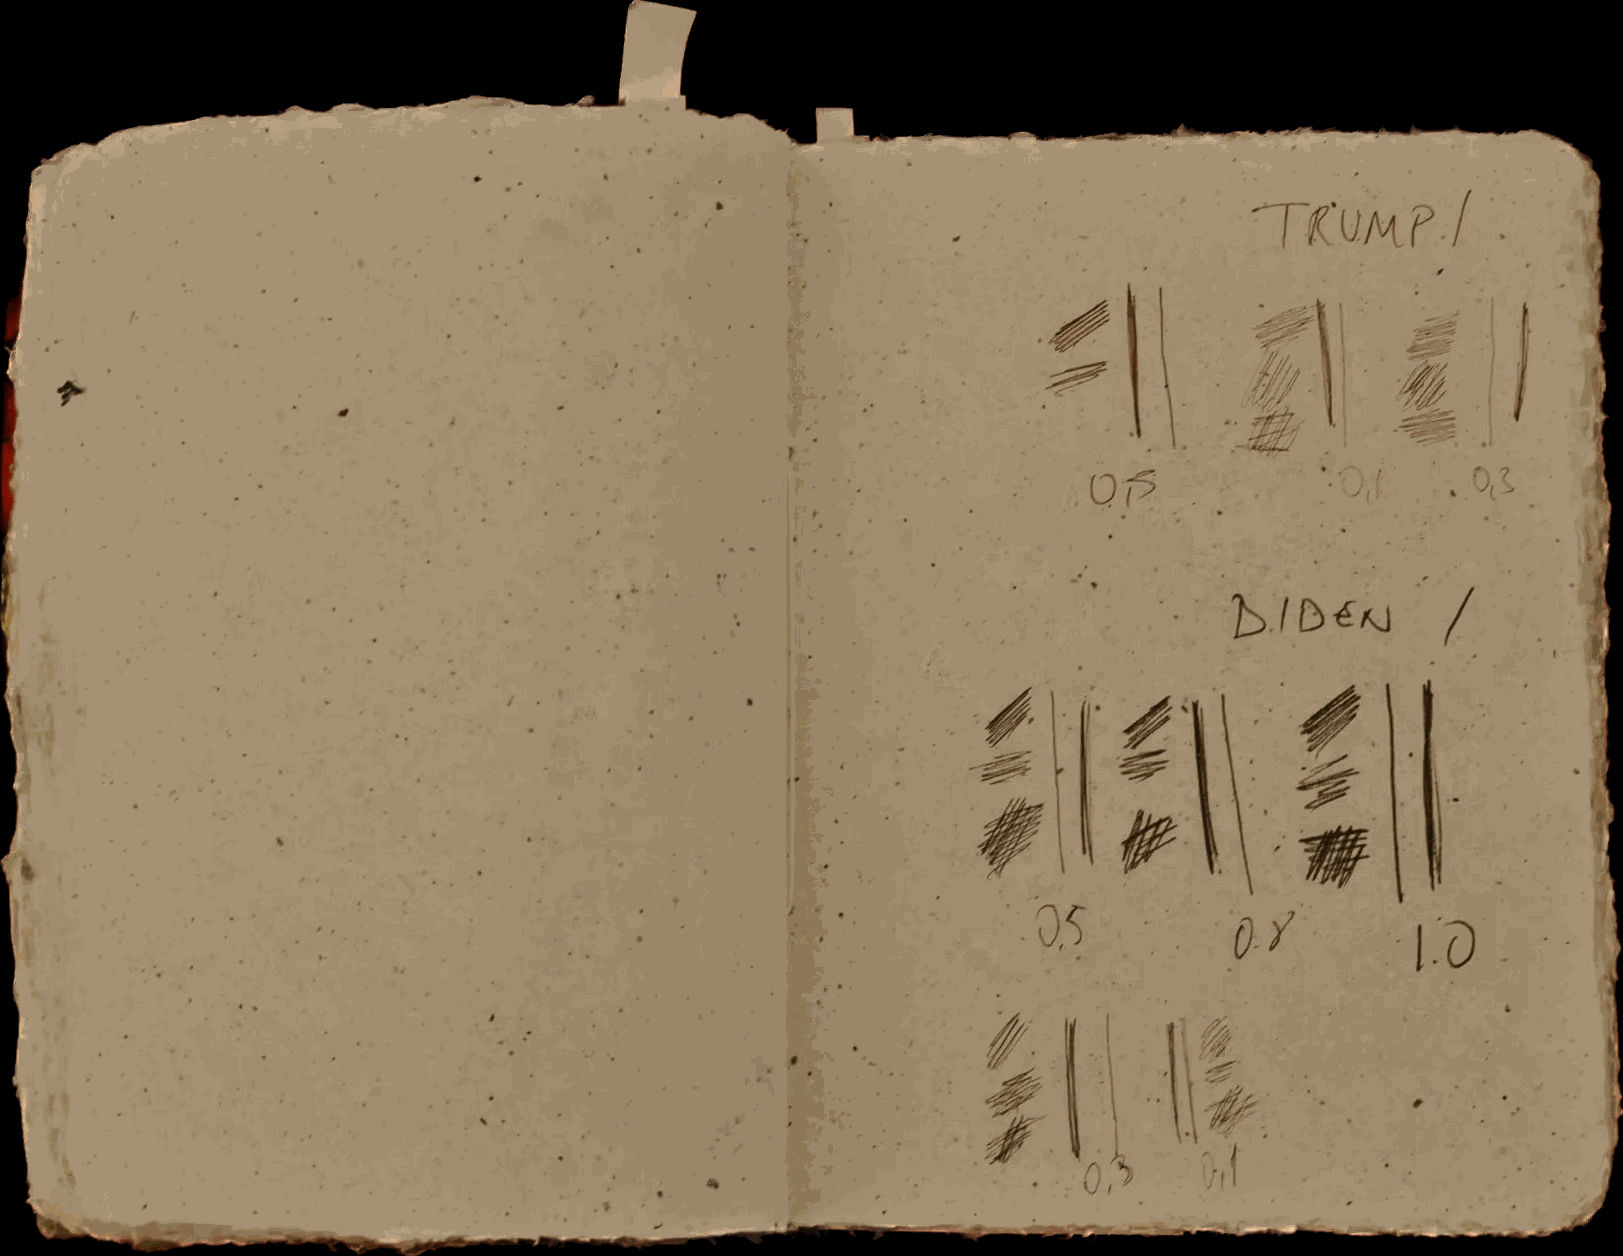 TRUMP /
0,5 0,1 0,3
BIDEN /
0.5 0.8 1.0
0,3 0,1